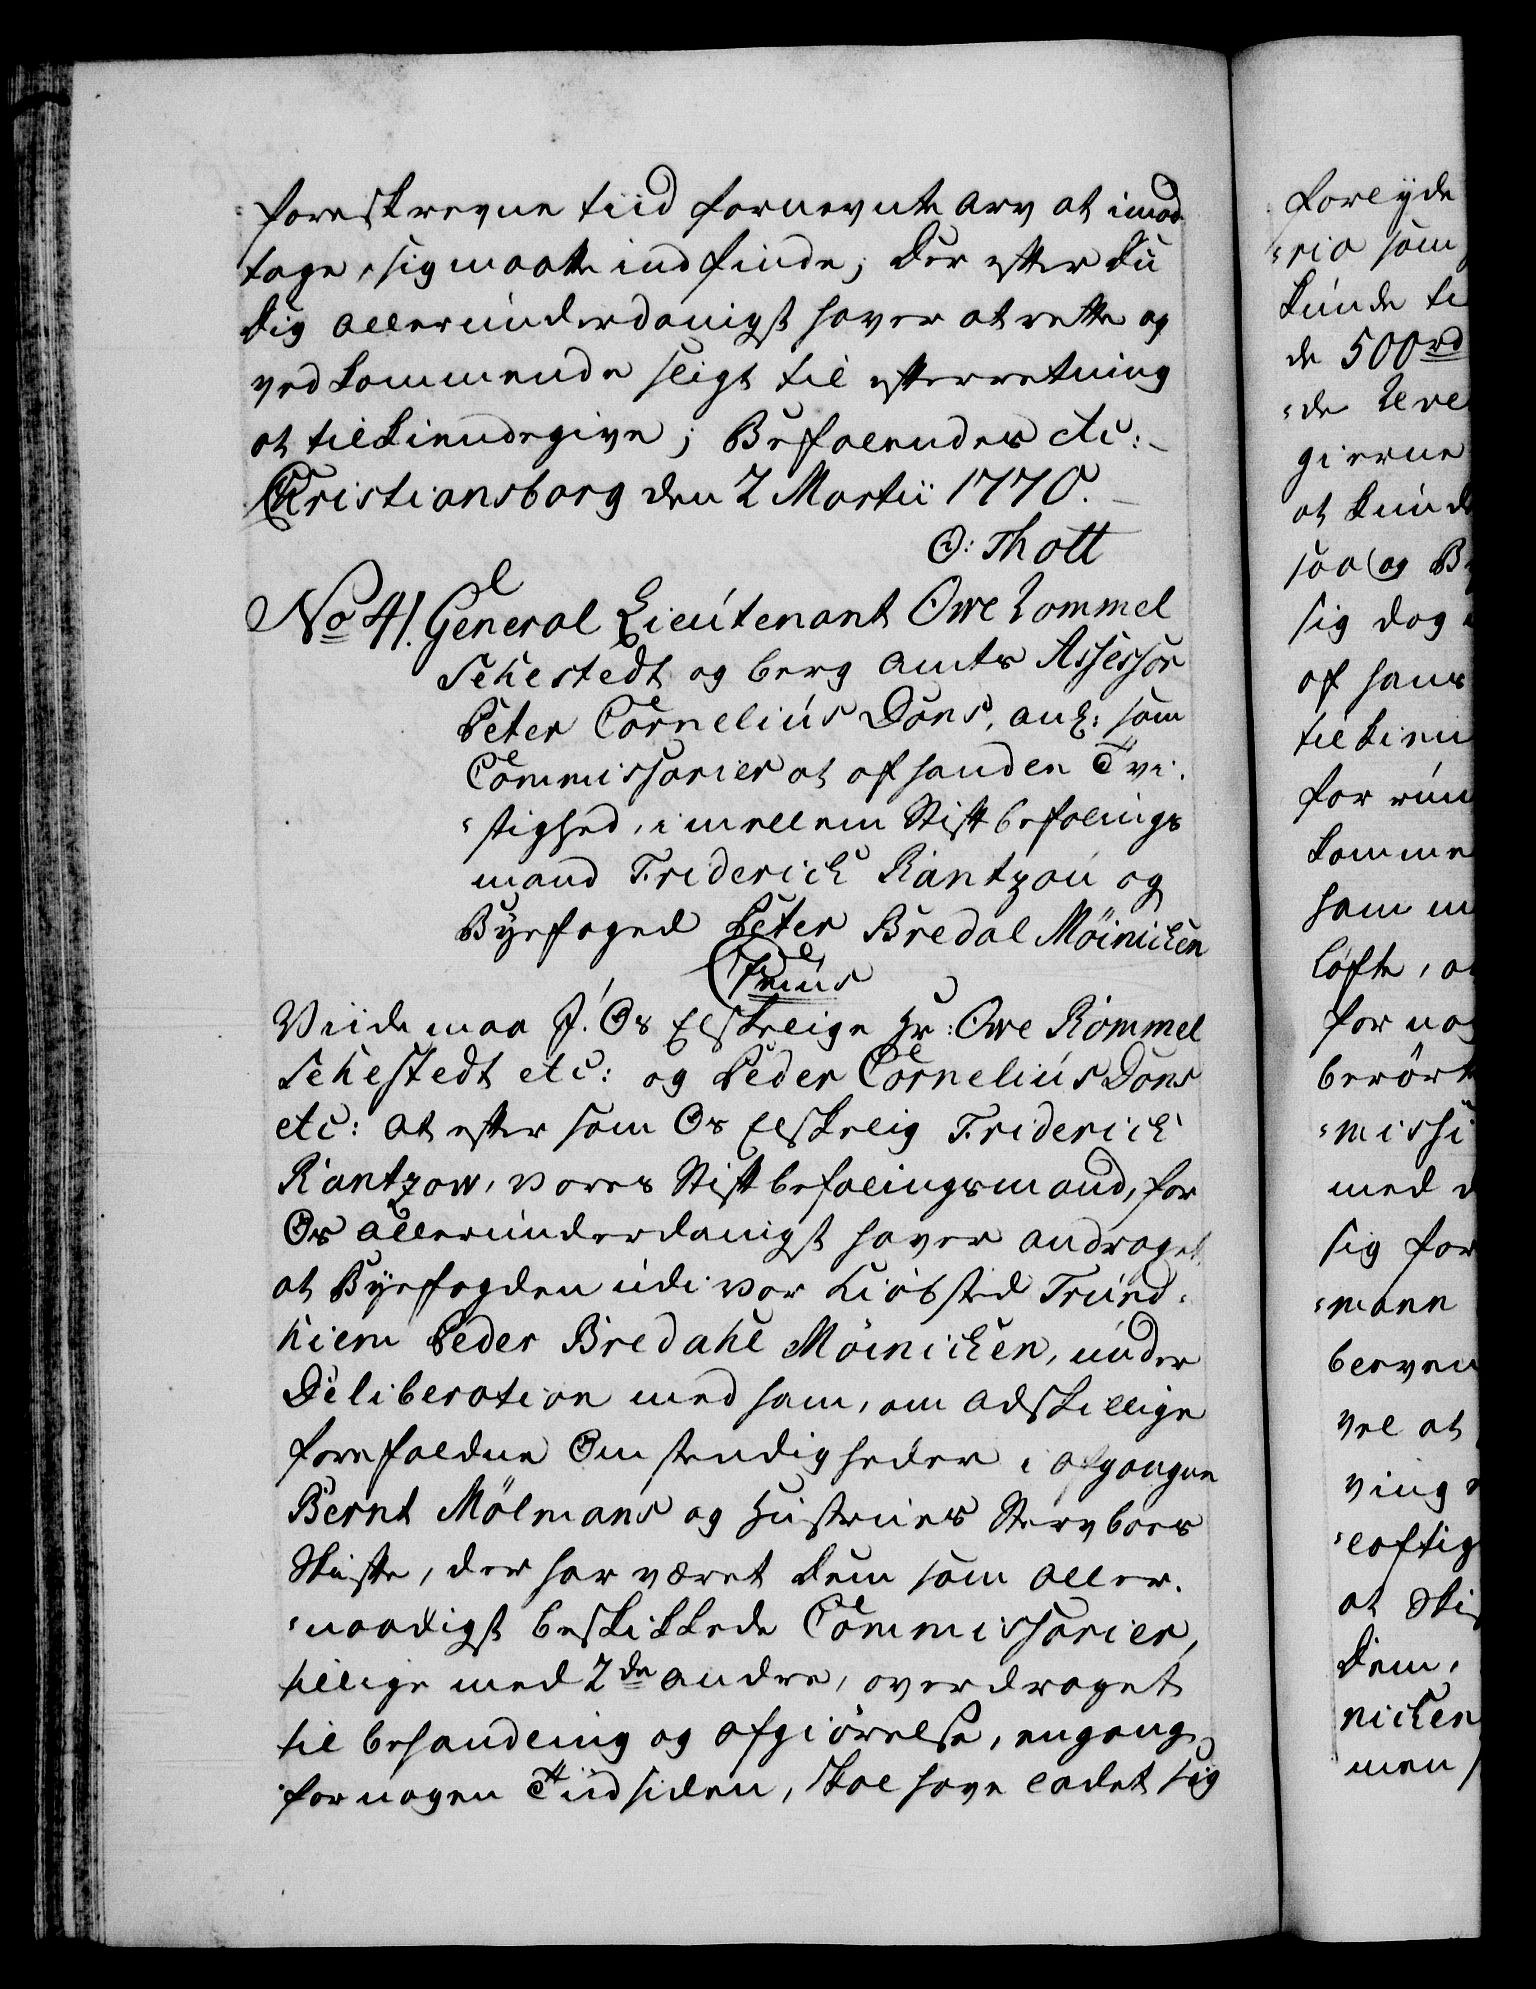 foreskrevne tiid fornevnte Arv at imod-
tage, sig maatte indfinde; Der efter Du
dig allerunderdanigst haver at rette og
vedkommende sligt til efterretning
at tilkiendegive; Befalendes etc:
Christiansborg den 2 Martii 1770.
O: Thott
No 41. General Lieutenant Owe Rommel
Sehestedt og berg amts Assessor
Peter Cornelius Dons, anl: som
Commissarier at afhandle Tvi-
stighed, imellem Stiftbefalings
mand Friderich Rantzou og
Byefoged Peter Bredal Möinichen
Viide maa I. Os Elskelige Hr: Owe Rommel
Sehestedt etc: og Peder Cornelius Dons
etc: at efter som Os Elskelig Friderich
Rantzow, vores Stiftbefalingsmand, for
Os allerunderdanigst haver andraget,
at Byefogden udi vor Kiöbsted Trund-
hiem Peder Bredahl Möinichen, under
Deliberation med ham, om adskillige
forefaldne Omstendigheder i afgangne
Bernt Mölmans og Hustrues Stervboes
Skifte, der har været dem som aller-
naadigst beskikkede Commissarier,
tillige med 2de andre, overdraget
til behandling og afgiörelse, engang
for nogen Tiid siden, skal have ladet sig
forlyde
kunde
de 500rd
gierne
saa og
sig dog
af hans
for
ham
löfte,
for
berört
missi
med
sig for
mann
vel at
ving
at
dem,
nichen
men